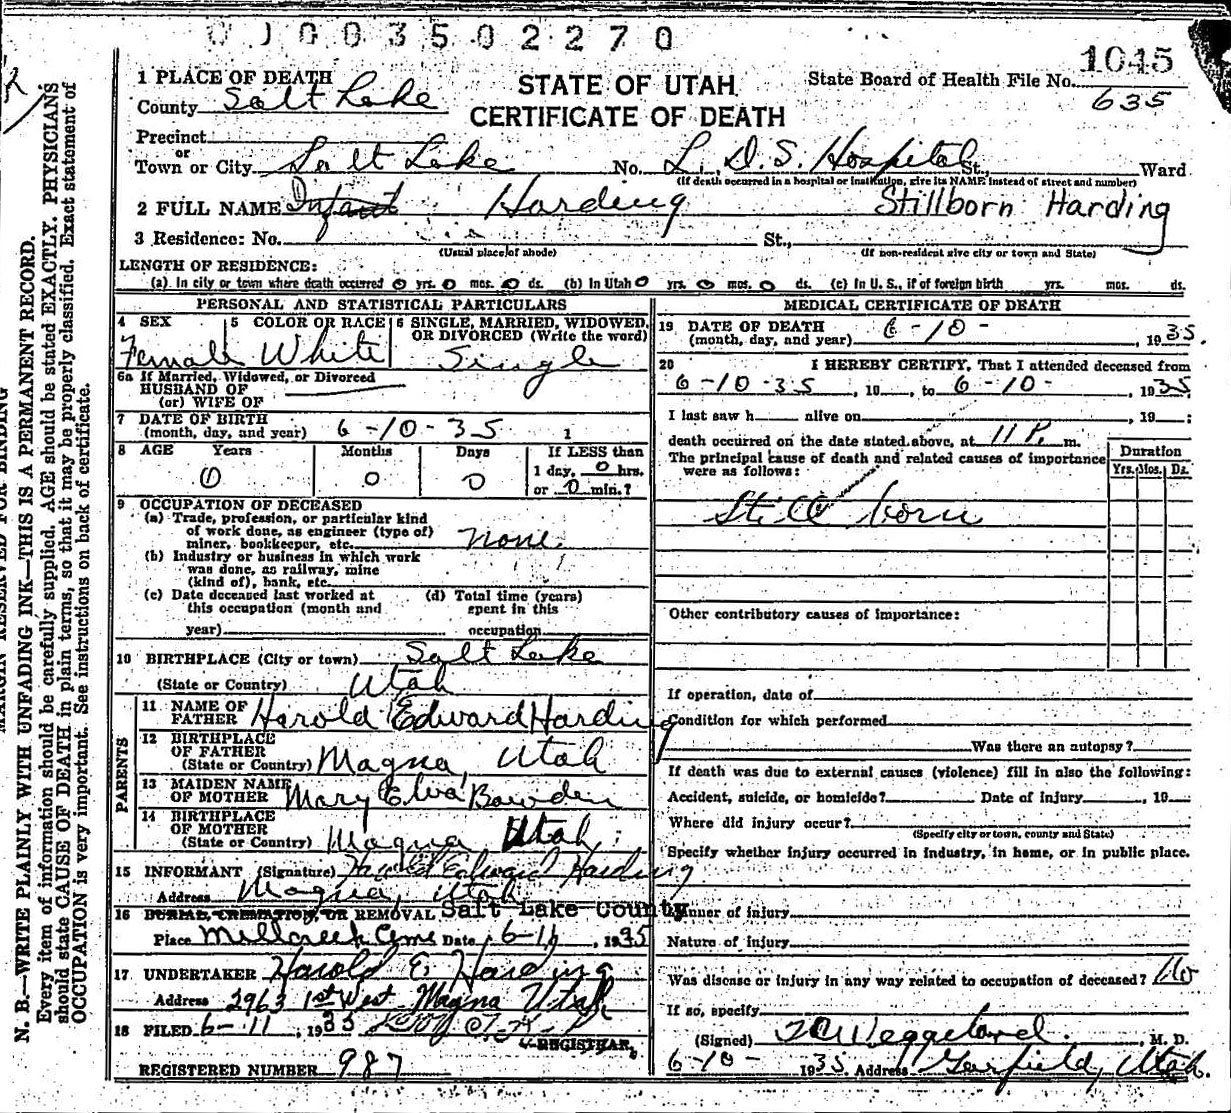 0 0 0 3 5 0 2 2 7 0
1 PLACE OF DEATH
STATE OF UTAH
State Board of Health File No. 1045
County Salt Lake
635
CERTIFICATE OF DEATH
Precinct
or
Town or City Salt Lake No. L. D. S. Hospital St., Ward
(If death occurred in a hospital or institution, give its NAME instead of street and number)
2 FULL NAME Infant Harding Stillborn Harding
3 Residence: No. St.,
(Usual place of abode) (If non-resident give city or town and State)
LENGTH OF RESIDENCE:
(a) In city or town where death occurred 0 yrs. 0 mos. 0 ds. (b) In Utah 0 yrs. 0 mos. 0 ds. (c) In U. S., if of foreign birth yrs. mos. ds.
PERSONAL AND STATISTICAL PARTICULARS
4 SEX 5 COLOR OR RACE 6 SINGLE, MARRIED, WIDOWED, OR DIVORCED (Write the word)
Female White Single
6a If Married, Widowed, or Divorced
HUSBAND OF
(or) WIFE OF
7 DATE OF BIRTH
(month, day, and year) 6-10-35
8 AGE Years Months Days If LESS than
0 0 0 1 day, 0 hrs.
or 0 min.?
9 OCCUPATION OF DECEASED
(a) Trade, profession, or particular kind
of work done, as engineer (type of)
miner, bookkeeper, etc. None
(b) Industry or business in which work
was done, as railway, mine
(kind of), bank, etc.
(c) Date deceased last worked at (d) Total time (years)
this occupation (month and spent in this
year) occupation
10 BIRTHPLACE (City or town) Salt Lake
(State or Country) Utah
PARENTS
11 NAME OF
FATHER Harold Edward Harding
12 BIRTHPLACE
OF FATHER
(State or Country) Magna, Utah
13 MAIDEN NAME
OF MOTHER Mary Elva Bawden
14 BIRTHPLACE
OF MOTHER
(State or Country) Magna Utah
15 INFORMANT (Signature) Harold Edward Harding
Address Magna, Utah
16 BURIAL, CREMATION, OR REMOVAL Salt Lake County
Place Millcreek Cem Date 6-11, 1935
17 UNDERTAKER Harold E Harding
Address 2963 1st West Magna Utah
18 FILED 6-11, 1935
REGISTRAR
REGISTERED NUMBER 987
MEDICAL CERTIFICATE OF DEATH
19 DATE OF DEATH
(month, day, and year) 6-10-, 1935.
20 I HEREBY CERTIFY, That I attended deceased from
6-10-35, 19, to 6-10-, 1935
I last saw h alive on, 19 :
death occurred on the date stated above, at 11 P. m.
The principal cause of death and related causes of importance
were as follows:
Duration
Yrs. Mos. Ds.
Still born
Other contributory causes of importance:
If operation, date of
Condition for which performed
Was there an autopsy?
If death was due to external causes (violence) fill in also the following:
Accident, suicide, or homicide? Date of injury, 19
Where did injury occur?
(Specify city or town, county and State)
Specify whether injury occurred in industry, in home, or in public place.
Manner of injury
Nature of injury
Was disease or injury in any way related to occupation of deceased? No
If so, specify
(Signed) Weggeland, M. D.
6-10- 1935. Address Garfield, Utah.
MARGIN RESERVED FOR BINDING
N. B.—WRITE PLAINLY WITH UNFADING INK—THIS IS A PERMANENT RECORD.
Every item of information should be carefully supplied. AGE should be stated EXACTLY. PHYSICIANS
should state CAUSE OF DEATH in plain terms, so that it may be properly classified. Exact statement of
OCCUPATION is very important. See instructions on back of certificate.